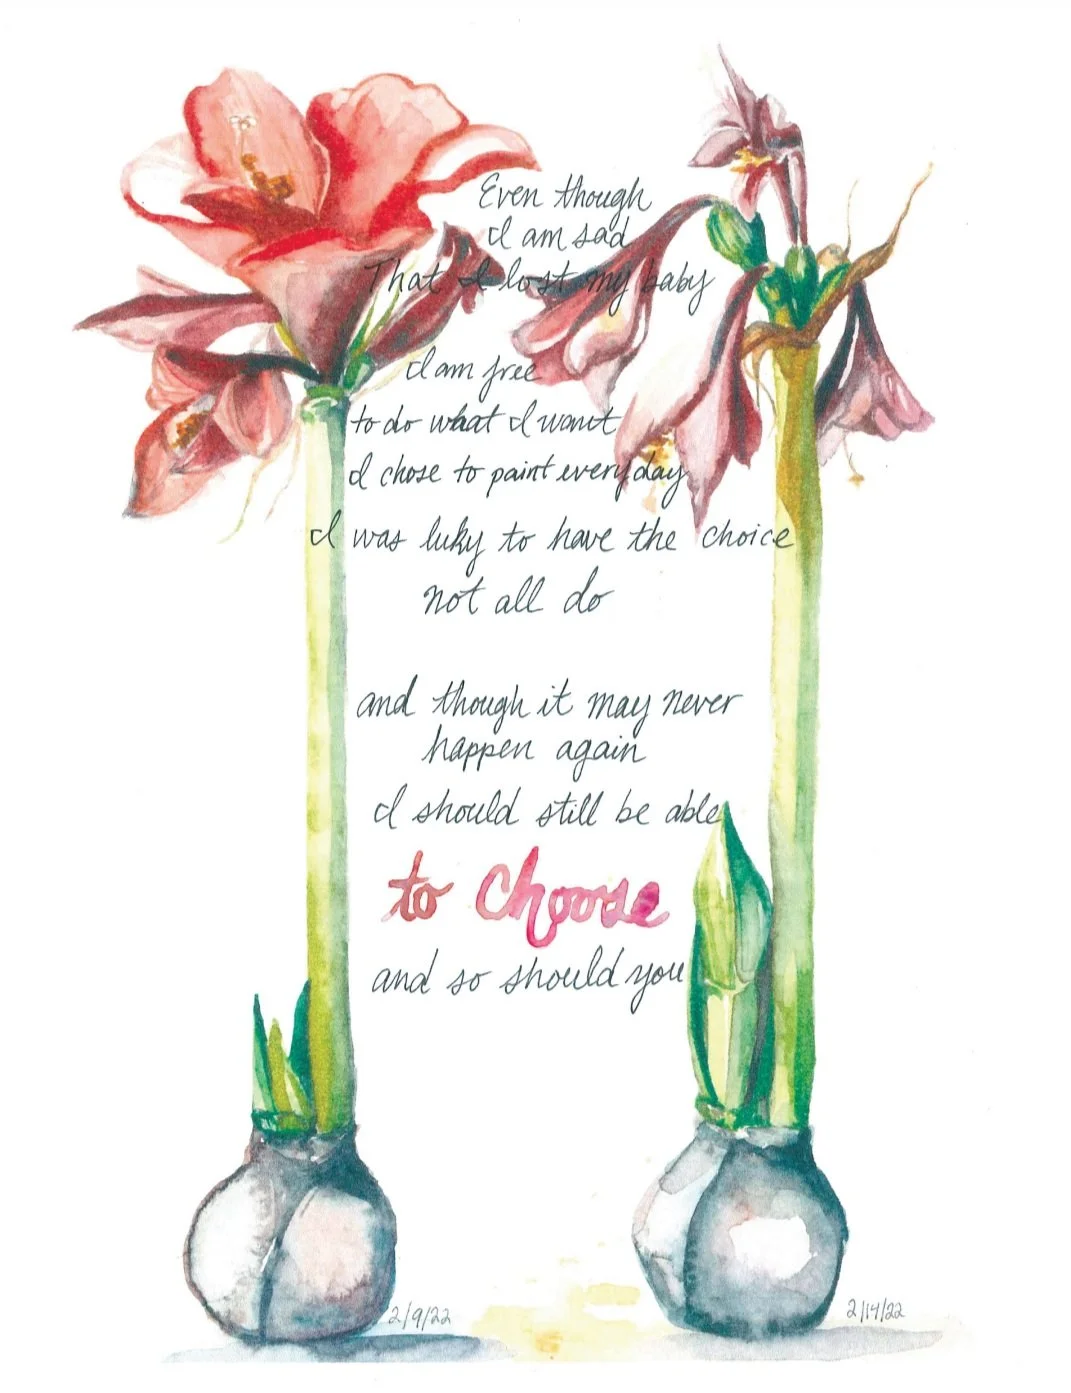 Even though
I am sad
That I lost my baby
I am free
to do what I want
I chose to paint everyday
I was luky to have the choice
not all do
and though it may never
happen again
I should still be able
to choose
and so should you
2/9/22
2/14/22